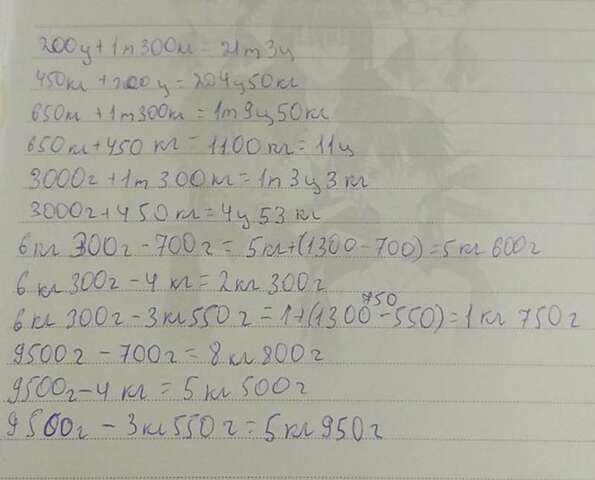 200ц+1т300кг=21т3ц
450кг+200ц=204ц50кг
650кг+1т300кг=1т9ц50кг
650кг+450кг=1100кг=11ц
3000г+1т300кг=1т3ц3кг
3000г+450кг=4ц53кг
6кг300г-700г=5кг+(1300-700)=5кг600г
6кг300г-4кг=2кг300г
750
6кг300г-3кг550г=1+(1300-550)=1кг750г
9500г-700г=8кг800г
9500г-4кг=5кг500г
9500г-3кг550г=5кг950г